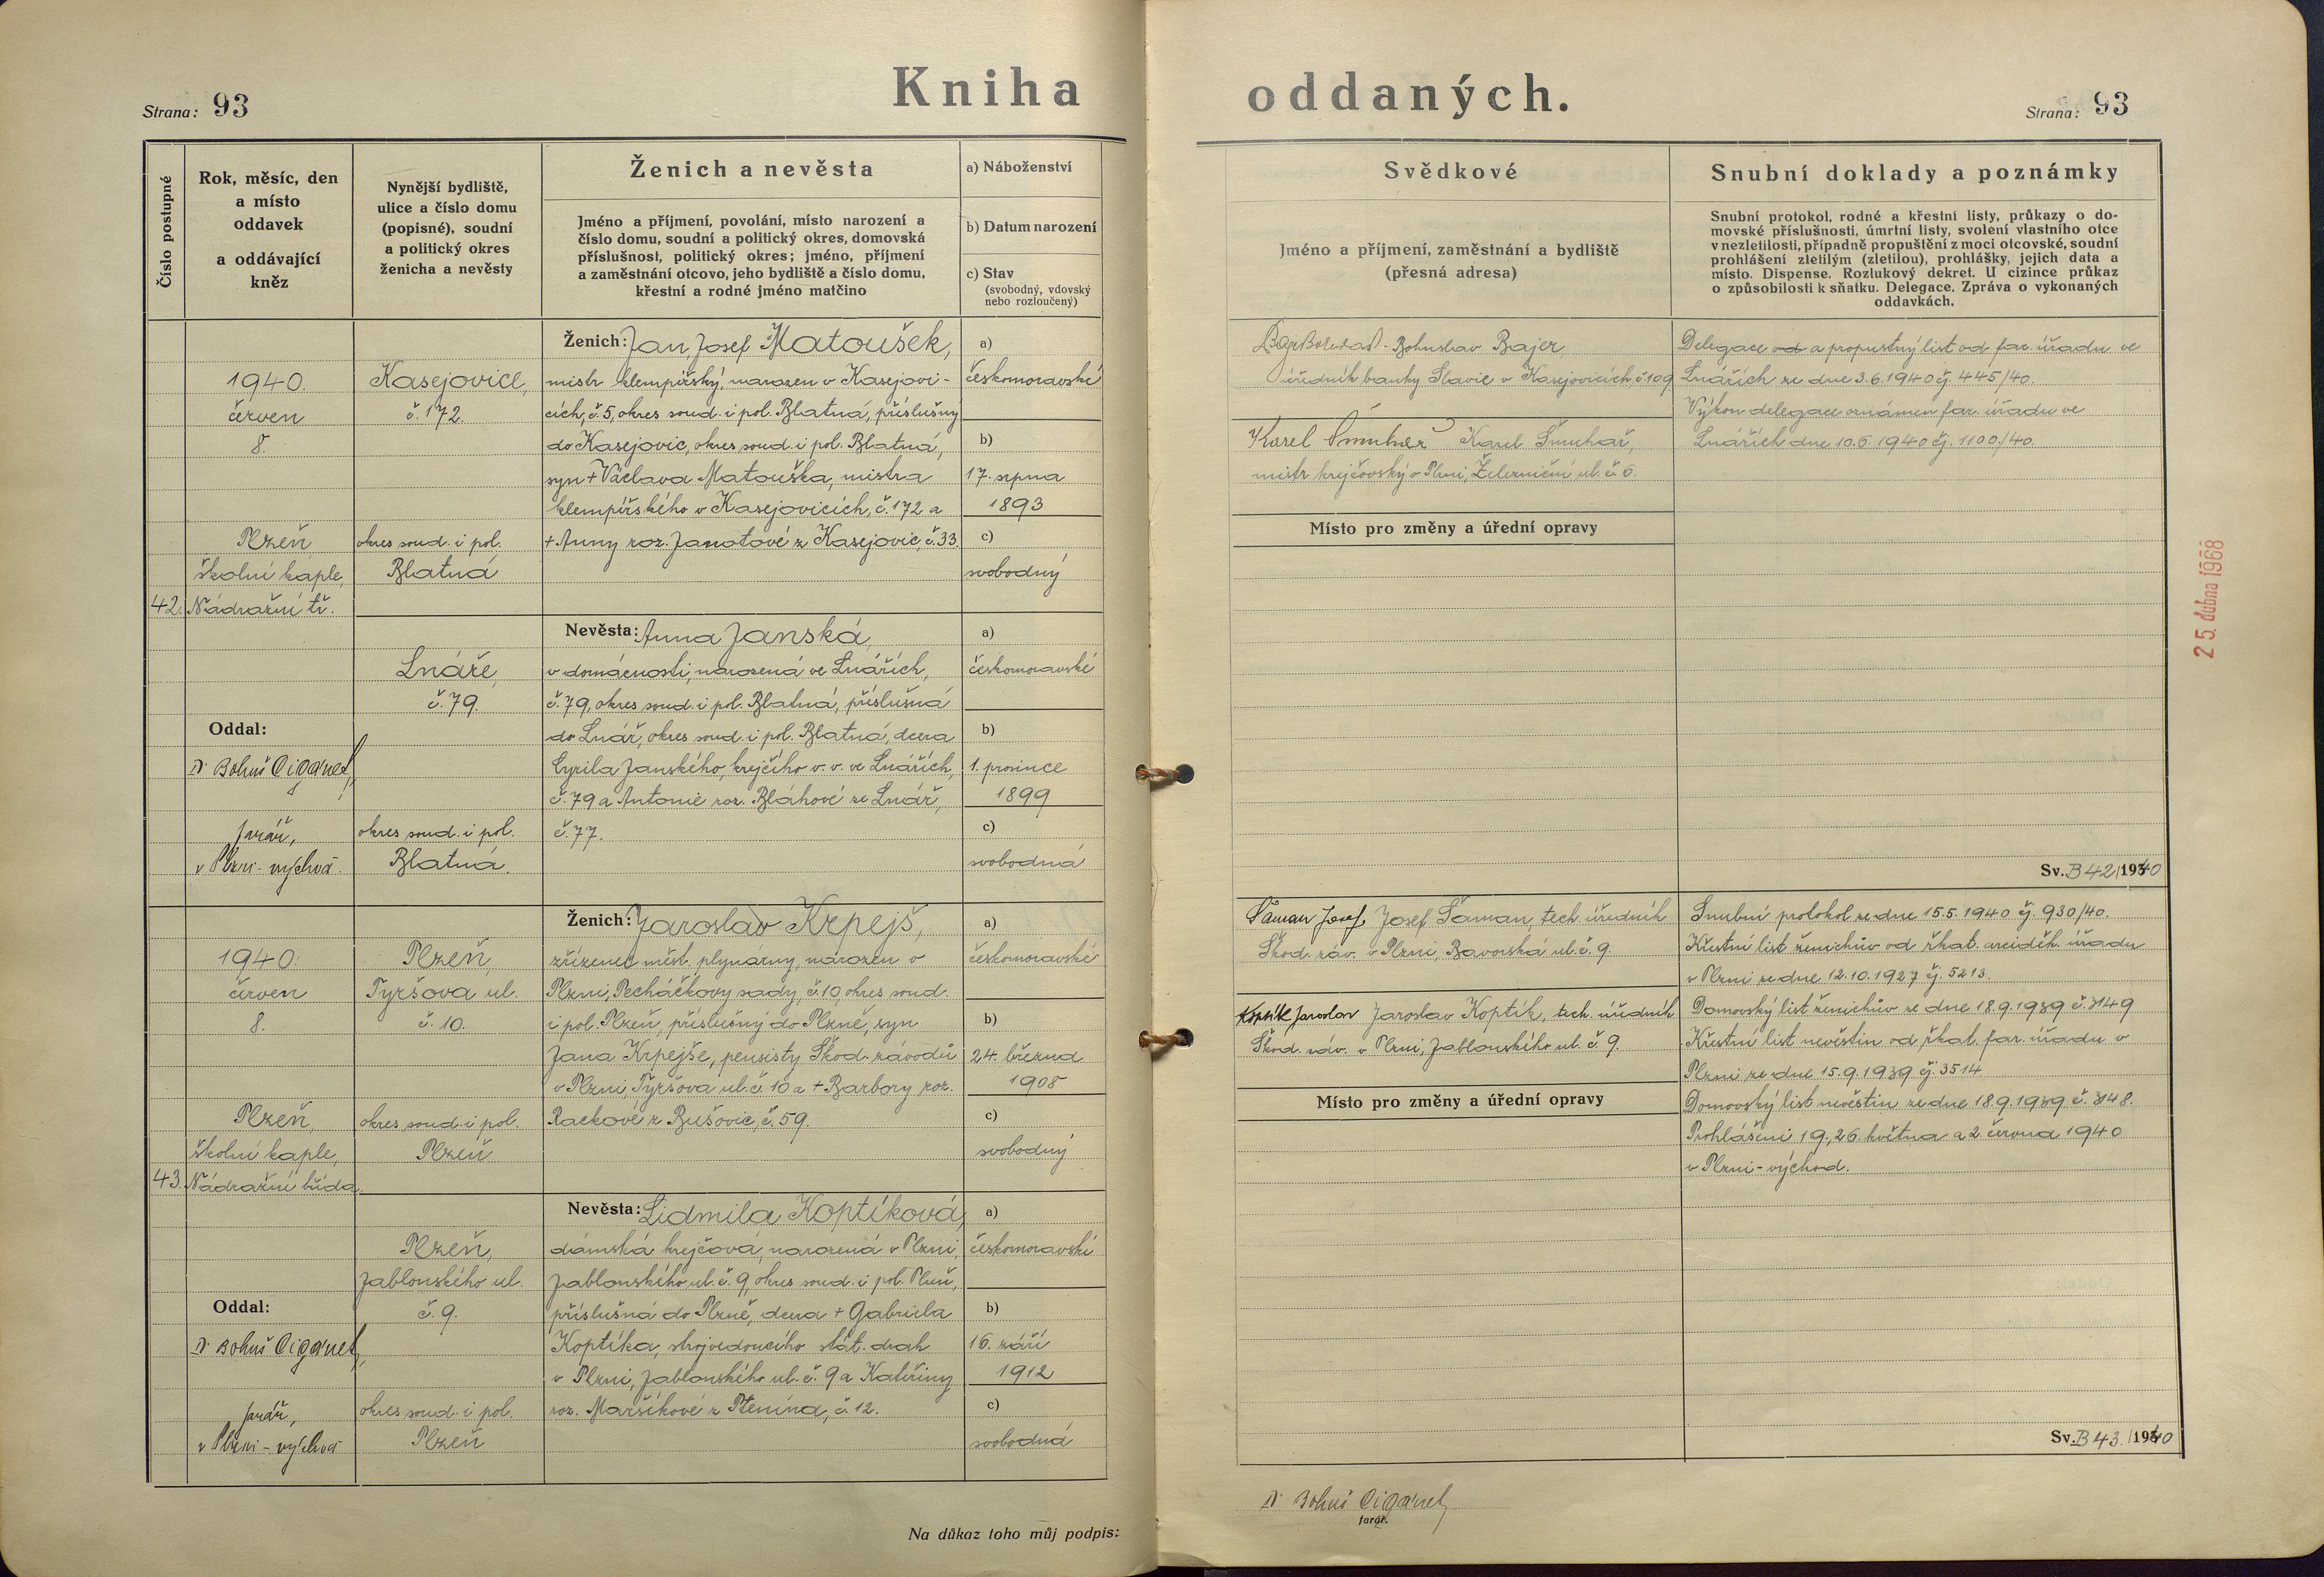 Kniha oddaných.
Strana: 93
Strana: 93
Číslo postupné
Rok, měsíc, den
a místo
oddavek
a oddávající
kněz
Nynější bydliště,
ulice a číslo domu
(popisné), soudní
a politický okres
ženicha a nevěsty
Ženich a nevěsta
Jméno a příjmení, povolání, místo narození a
číslo domu, soudní a politický okres, domovská
příslušnost, politický okres; jméno, příjmení
a zaměstnání otcovo, jeho bydliště a číslo domu,
křestní a rodné jméno matčino
a) Náboženství
b) Datum narození
c) Stav
(svobodný, vdovský
nebo rozloučený)
Svědkové
Jméno a příjmení, zaměstnání a bydliště
(přesná adresa)
Snubní doklady a poznámky
Snubní protokol, rodné a křestní listy, průkazy o do-
movské příslušnosti, úmrtní listy, svolení vlastního otce
v nezletilosti, případně propuštění z moci otcovské, soudní
prohlášení zletilým (zletilou), prohlášky, jejich data a
místo. Dispense. Rozlukový dekret. U cizince průkaz
o způsobilosti k sňatku. Delegace. Zpráva o vykonaných
oddavkách.
42.
1940.
červen
8.
Plzeň,
školní kaple,
Nádražní tř.
Oddal:
Dr Bohuš Cigánek,
farář,
v Plzni-východ
Kasejovice,
č. 172.
okres soud. i pol.
Blatná
Ženich: Jan Josef Matoušek,
mistr klempířský, narozen v Kasejovi-
cích, č. 5, okres soud. i pol. Blatná, příslušný
do Kasejovic, okres soud. i pol. Blatná,
syn + Václava Matouška, mistra
klempířského v Kasejovicích, č. 172 a
+ Anny roz. Janotové z Kasejovic, č. 33.
a)
českomoravské
b)
17. srpna
1893
c)
svobodný
Lnáře,
č. 79.
okres soud. i pol.
Blatná.
Nevěsta: Anna Janská,
v domácnosti, narozená ve Lnářích,
č. 79, okres soud. i pol. Blatná, příslušná
do Lnář, okres soud. i pol. Blatná, dcera
Cyrila Janského, krejčího v. v. ve Lnářích,
č. 79 a Antonie roz. Bláhové ze Lnář,
č. 77.
a)
českomoravské
b)
1. prosince
1899
c)
svobodná
Bohuslav Bajer,
úředník banky Slavie v Kasejovicích, č. 109
Karel Šmuhař Karel Šmuhař,
mistr krejčovský v Plzni, Železniční ul. č. 6.
Místo pro změny a úřední opravy
Delegace od a propustný list od far. úřadu ve
Lnářích ze dne 3.6.1940 čj. 445/40.
Výkon delegace oznámen far. úřadu ve
Lnářích dne 10.6.1940 čj. 1100/40.
Sv. B 42/1940
25. dubna 1968
43.
1940.
červen
8.
Plzeň,
školní kaple,
Nádražní třída.
Oddal:
Dr Bohuš Cigánek,
farář,
v Plzni-východ
Plzeň,
Tyršova ul.
č. 10.
okres soud. i pol.
Plzeň
Ženich: Jaroslav Krpejš,
zřízenec měst. plynárny, narozen v
Plzni, Pecháčkovy sady, č. 10, okres soud.
i pol. Plzeň, příslušný do Plzně, syn
Jana Krpejše, pensisty Škod. závodů
v Plzni, Tyršova ul. č. 10 a + Barbory roz.
Rackové z Bušovic, č. 59.
a)
českomoravské
b)
24. března
1908
c)
svobodný
Plzeň,
Jablonského ul.
č. 9.
okres soud. i pol.
Plzeň
Nevěsta: Lidmila Koptíková,
dámská krejčová, narozená v Plzni,
Jablonského ul. č. 9, okres soud. i pol. Plzeň,
příslušná do Plzně, dcera + Gabriela
Koptíka, strojvedoucího stát. drah
v Plzni, Jablonského ul. č. 9 a Kateřiny
roz. Maršíkové z Ptenína, č. 12.
a)
českomoravské
b)
16. září
1912
c)
svobodná
Šaman Josef, Josef Šaman, tech. úředník
Škod. záv. v Plzni, Bavorská ul. č. 9.
Koptík Jaroslav Jaroslav Koptík, tech. úředník
Škod. záv. v Plzni, Jablonského ul. č. 9.
Místo pro změny a úřední opravy
Snubní protokol ze dne 15.5.1940 čj. 930/40.
Křestní list ženichův od řkat. arciděk. úřadu
v Plzni ze dne 12.10.1927 čj. 5213.
Domovský list ženichův ze dne 18.9.1939 č. 3149
Křestní list nevěstin od řkat. far. úřadu v
Plzni ze dne 15.9.1939 čj. 3514
Domovský list nevěstin ze dne 18.9.1939 č. 3148.
Prohlášeni 19., 26. května a 2. června 1940
v Plzni-východ.
Sv. B 43./1940
Na důkaz toho můj podpis:
Dr Bohuš Cigánek,
farář.